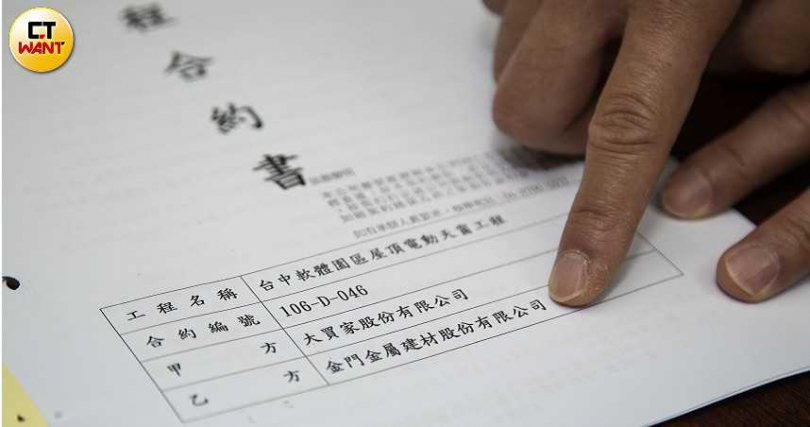 CT
WANT
程合約書
工程名稱 台中軟體園區屋頂電動天窗工程
合約編號 106-D-046
甲方 大買家股份有限公司
乙方 金門金屬建材股份有限公司